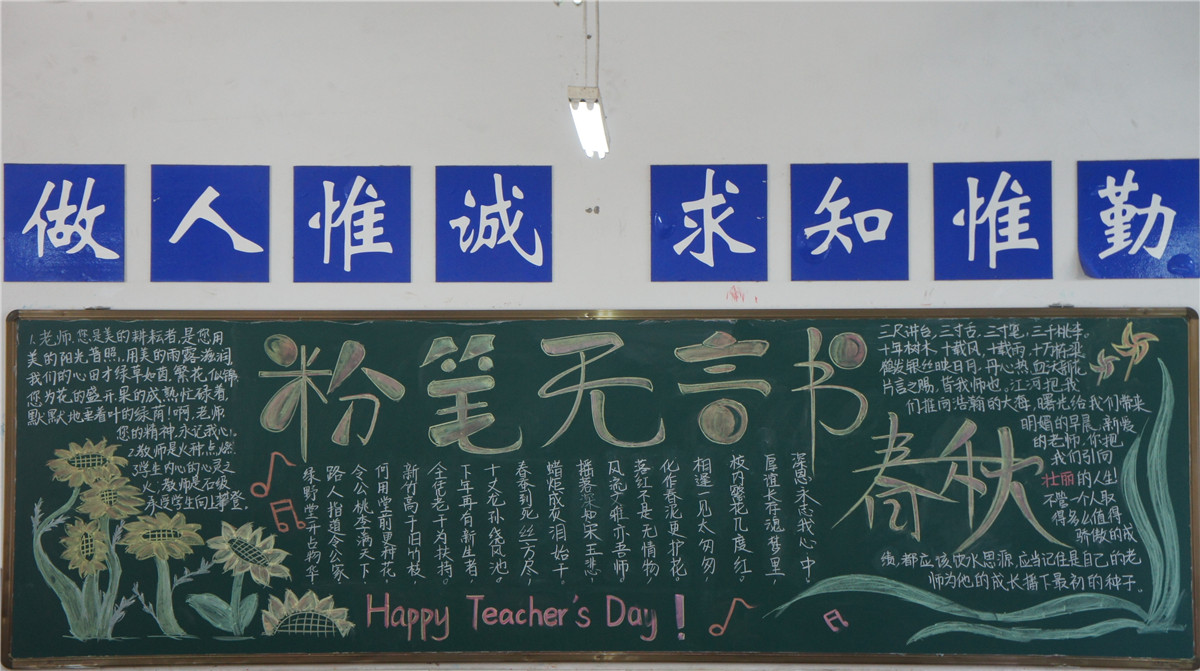 做人惟诚 求知惟勤
粉笔无言书
春秋
1.老师,您是美的耕耘者,是您用
美的阳光普照,用美的雨露滋润,
我们的心田才绿草如茵,繁花似锦,
您为花的盛开,果的成熟忙碌着,
默默地垂着叶的绿荫!啊,老师,
您的精神,永记我心!
2.教师是火种,点燃
了学生内心的心灵之
火;教师是石级,
承受学生向上攀登。
深恩永志我心中,
厚谊长存魂梦里
校内繁花几度红。
相逢一见太匆匆,
化作春泥更护花
落红不是无情物
风流儒雅亦吾师
摇落深知宋玉悲
蜡炬成灰泪始干。
春蚕到死丝方尽,
十丈龙孙绕凤池。
下年再有新生者
全凭老干为扶持。
新竹高于旧竹枝
何用堂前更种花
令公桃李满天下,
路人指道令公家
绿野堂开占物华
三尺讲台,三寸舌,三寸笔,三千桃李。
十年树木,十载风,十载雨,十万栋梁
鹤发银丝映日月,丹心热血沃新花
片言之赐,皆我师也。江河把我
们推向浩瀚的大海,曙光给我们带来
明媚的早晨,亲爱
的老师,你把
我们引向
壮丽的人生!
不管一个人取
得多么值得
骄傲的成
绩,都应该饮水思源,应当记住是自己的老
师为他的成长播下最初的种子。
Happy Teacher's Day!